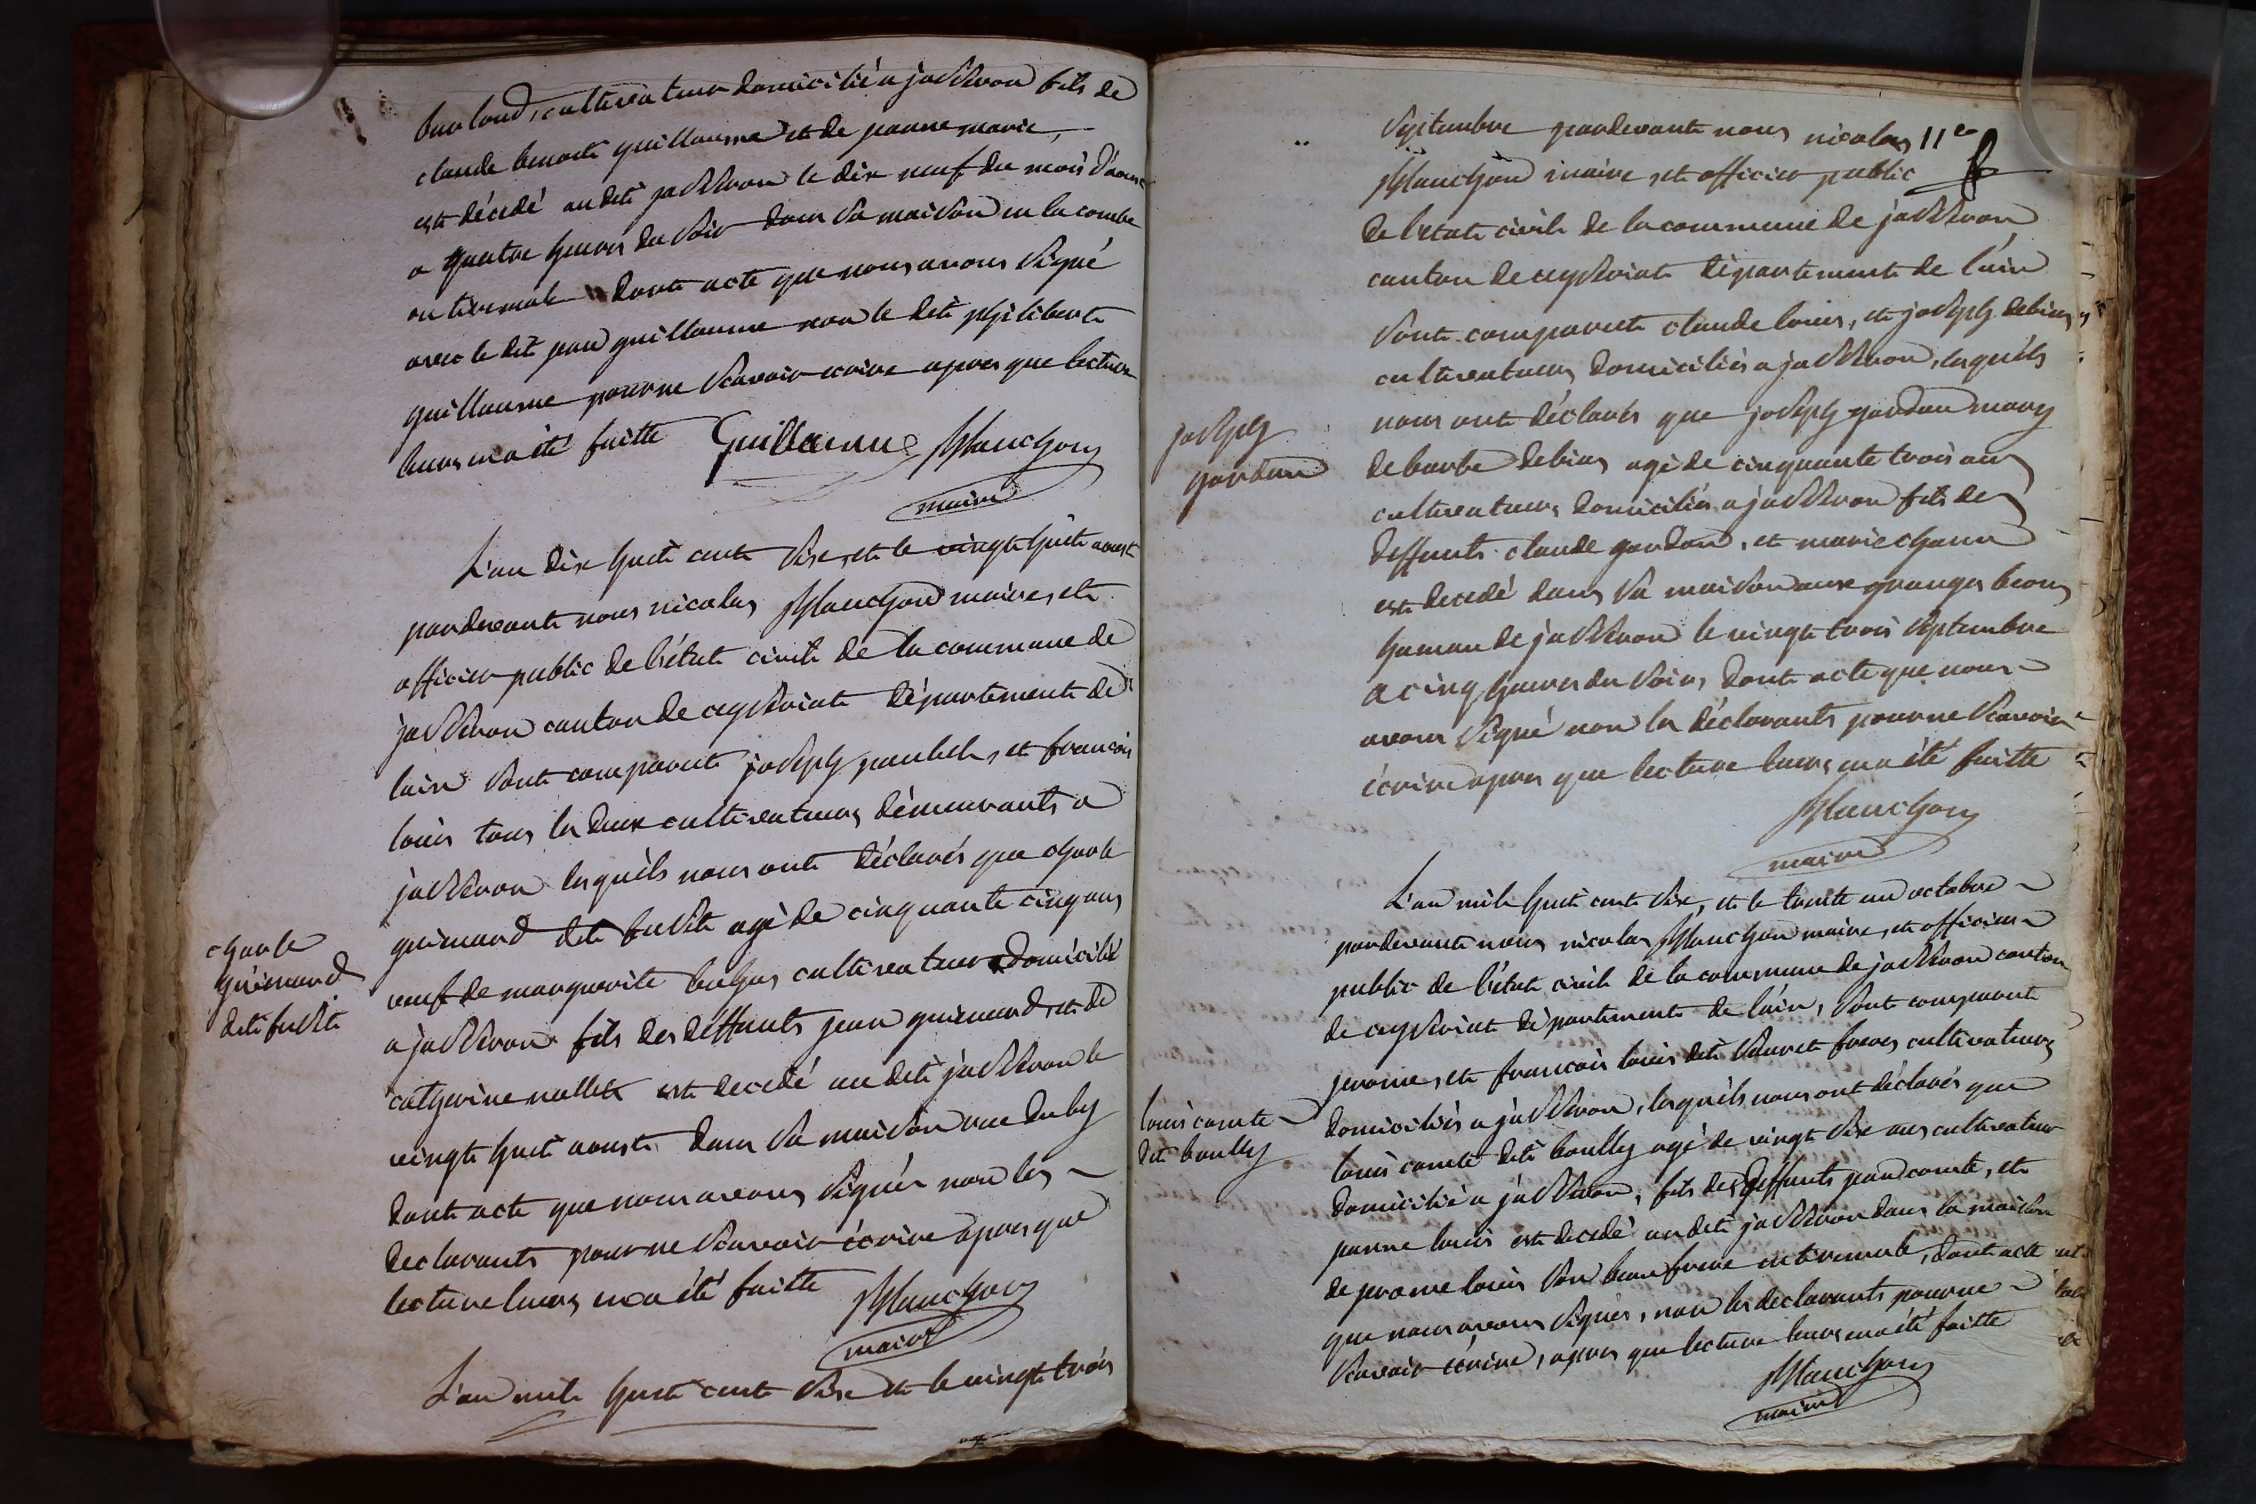 burloud, cultivateur domicilié a jasseron fils de
claude benoit guillaume et de jeanne marie
est décédé au dit jasseron le dix neuf du mois d'aoust
a quatre heures du soir dans sa maison en la combe
en tiremale dont acte que nous avons signé
avec le dit jean guillaume non le dit philibert
guillaume pour ne scavoir ecrire apres que lecture
leurs en a été faitte Guillaume Planchon
maire
L'an dix huit cent six, et le vingt huit aoust
pardevant nous nicolas Planchon maire, et
officier public de l'état civil de la commune de
jasseron canton de ceyseriat département de
lain sont comparut joseph et francois
louis tous les deux cultivateurs démeurants a
jasseron lesquels nous ont déclarés que charle
guémard dit fusit agé de cinquante cinq ans
veuf de marguerite cultivateur domicilié
a jasseron fils des deffunts jean guémard, et de
catherine nallet est decedé au dit jasseron le
vingt huit aoust dans sa maison rue
dont acte que nous avons signés non les
declarants pour ne scavoir écrire apres que
lecture leurs en a été faitte Planchon
maire
charle
guémard
dit fusit
L'an mile huit cent six et le vingt trois
septembre pardevant nous nicolas 11e
Planchon maire, et officier public
de l'etat civile de la commune de jasseron
canton de ceyseriat département de l'ain
sont comparut claude louis, et joseph debias
cultivateurs domiciliés a jasseron, lesquels
nous ont déclarés que joseph gardan mary
de barbe debias agé de cinquante trois ans
cultivateurs domiciliés a jasseron fils de
deffunts claude gardan, et marie
est decedé dans sa maison aux granges
hameau de jasseron le vingt trois septembre
a cinq heures du soir, dont acte que nous
avons signé non les déclarants pour ne scavoir
écrire apres que lecture leurs en a été faitte
Planchon
maire
joseph
gardan
L'an mile huit cent six, et le trente un octobre
pardevant nous nicolas Planchon maire, et officier
public de l'état civil de la commune de jasseron canton
de ceyseriat département de l'ain, sont comparut
jerome, et francois louis dit freres cultivateurs
domiciliés a jasseron, lesquels nous ont déclarés que
louis comte dit boully agé de vingt six ans cultivateur
domicilié a jasseron, fils des deffunts jean comte, et
jeanne louis est decedé au dit jasseron dans la maison
de jerome louis son beau frere en tiremale, dont acte
que nous avons signés, non les declarants pour ne
scavoir écrire, apres que lecture leurs en a été faitte
Planchon
maire
louis comte
dit boully